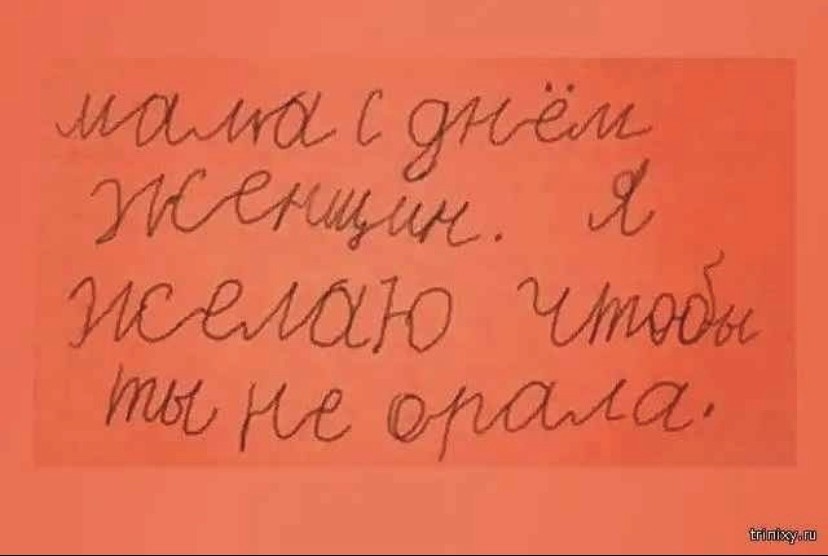 мама с днём
женщин. Я
желаю чтобы
ты не орала.
trinixy.ru